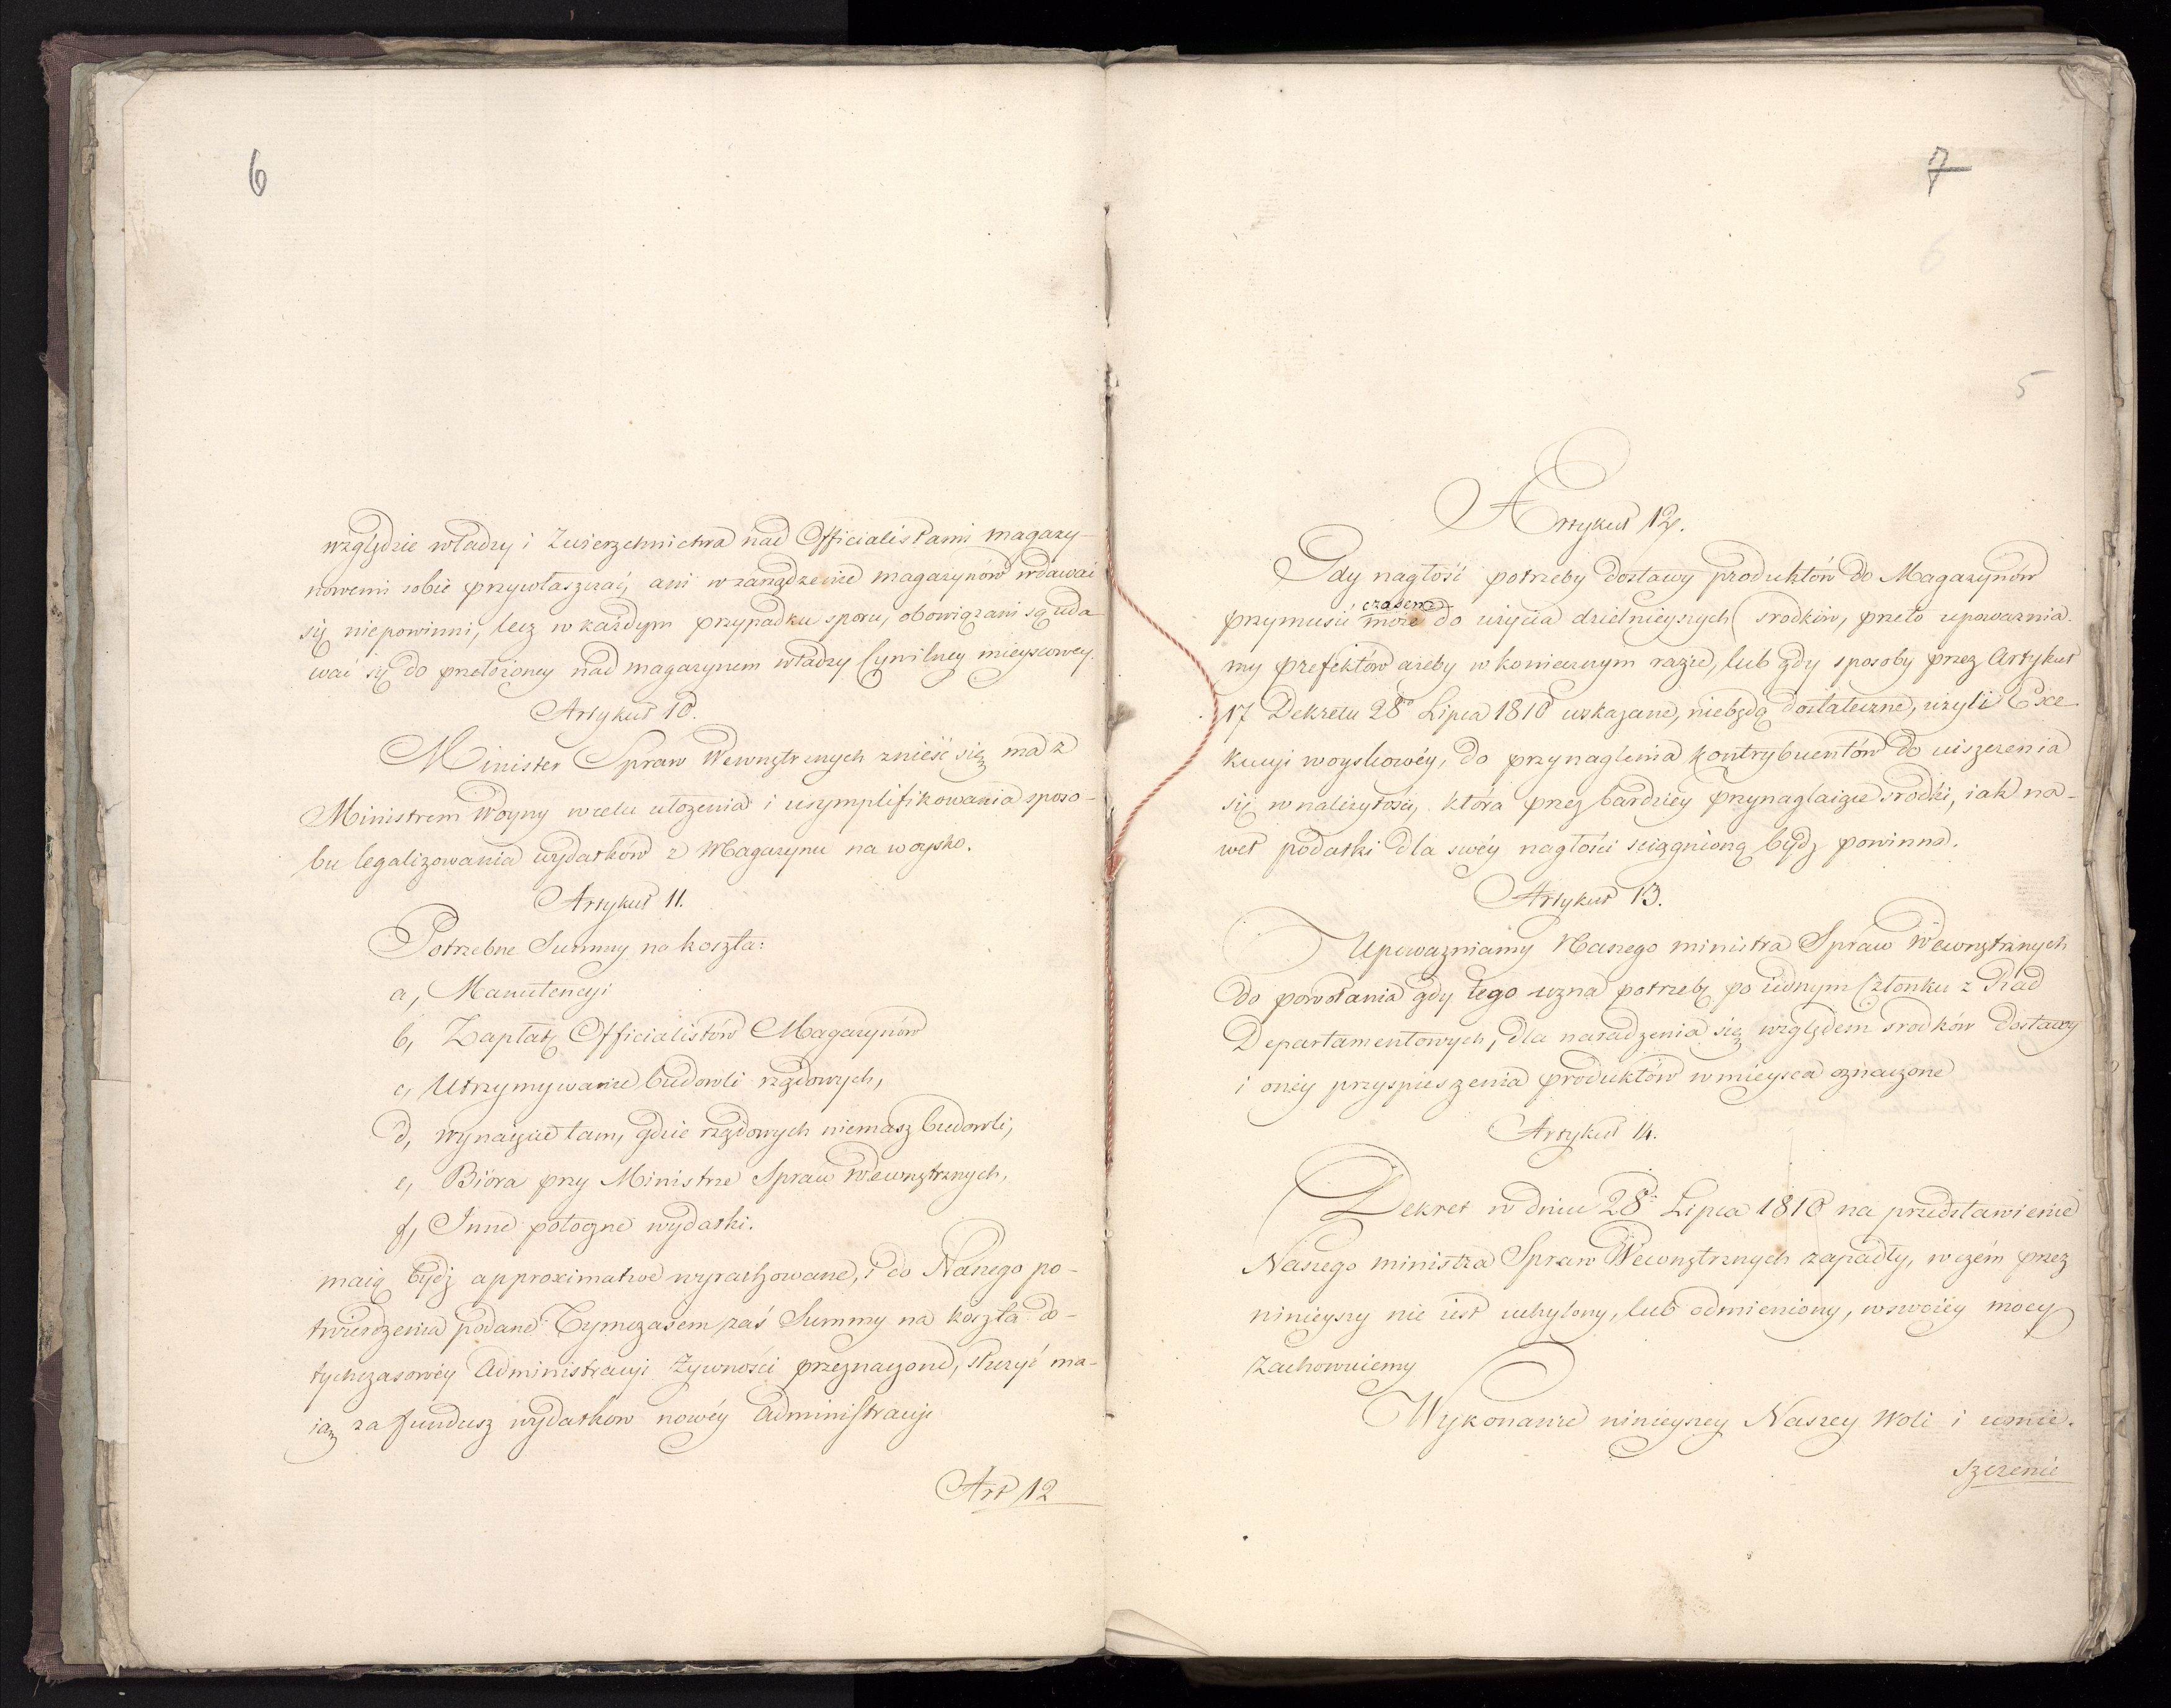 6
względzie władzy i Zwierzchnictwa nad Officialistami magazy-
nowemi sobie przywłaszczać, ani w zarządzenie magazynów wdawać
się niepowinni, lecz w każdym przypadku sporu, obowiązani są uda
wać się do przełożoney nad magazynem władzy Cywilney mieyscowey.
Artykuł 10.
Minister Spraw Wewnętrznych znieść się ma z
Ministrem Woyny w celu ułożenia i usymplifikowania sposo-
bu legalizowania wydatków z Magazynu na woysko.
Artykuł 11.
Potrzebne Summy na koszta:
a, Manutencyi
b, Zapłatę Officialistów Magazynów
c, Utrzymywanie budowli rządowych,
d, wynaięcie tam, gdzie rządowych niemasz budowli,
e, Bióra przy Ministrze Spraw Wewnętrznych,
f, Inne potoczne wydatki.
maią bydź approximative wyrachowane, i do Naszego po-
twierdzenia podane Tymczasem zaś Summy na koszta do-
tychczasowéy Administracyi Żywności przeznaczone, służyć ma-
ią za fundusz wydatkow nowéy Administracyi
Art 12
7
6
5
Artykuł 12.
Gdy nagłość potrzeby dostawy produktów do Magazynów
czasem
przymusić może do użycia dzielnieyszych srodków, przeto upoważnia-
my prefektów ażeby w koniecznym razie, lub gdy sposoby przez Artykuł
17 Dekretu 28o Lipca 1810 wskazane, niebędą dostateczne, użyli Exe
kucyi woyskowéy, do przynaglenia kontrybuentów do uiszczenia
się w należytości, która przez bardziey przynaglaiące srodki, iak na-
wet podatki dla swéy nagłości sciągnioną bydź powinna.
Artykuł 13.
Upoważniamy Naszego ministra Spraw Wewnętrznych
do powołania gdy tego uzna potrzebę po iednym Członku z Rad
Departamentowych, dla naradzenia się względem srodków dostawy
i onéy przyspieszenia produktów w mieysca oznaczone
Artykuł 14.
Dekret w dniu 28o Lipca 1810 na przedstawienie
Naszego ministra Spraw Wewnętrznych zapadły, w czém przez
ninieyszy nie iest uchylony, lub odmieniony, w swoiéy mocy
zachowuiemy
Wykonanie ninieyszey Naszey Woli i umie-
szczenie